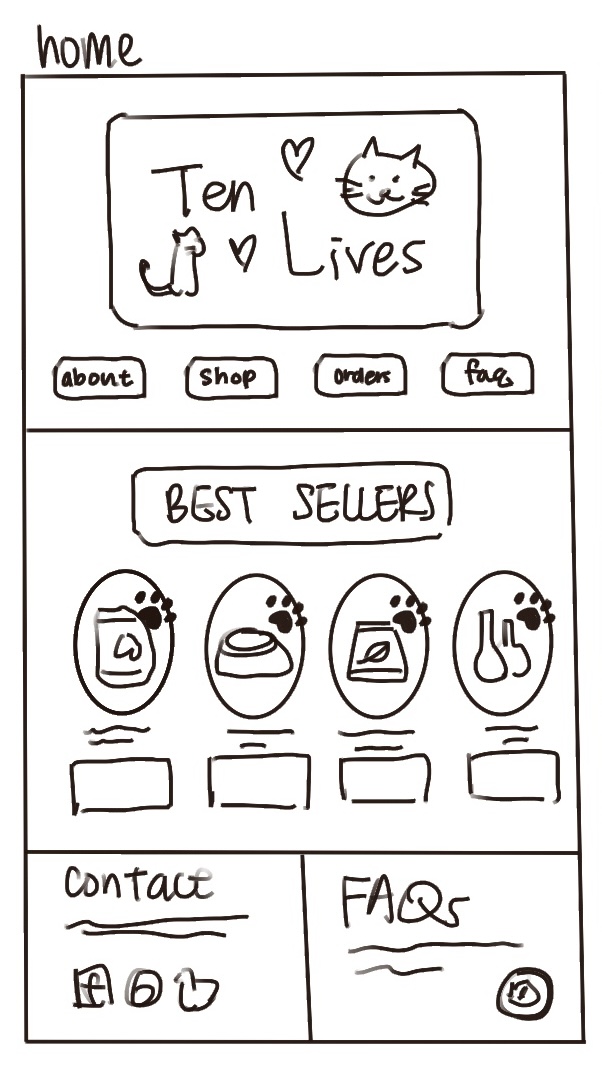 home
Ten
Lives
about
shop
orders
faq
BEST SELLERS
contact
FAQs